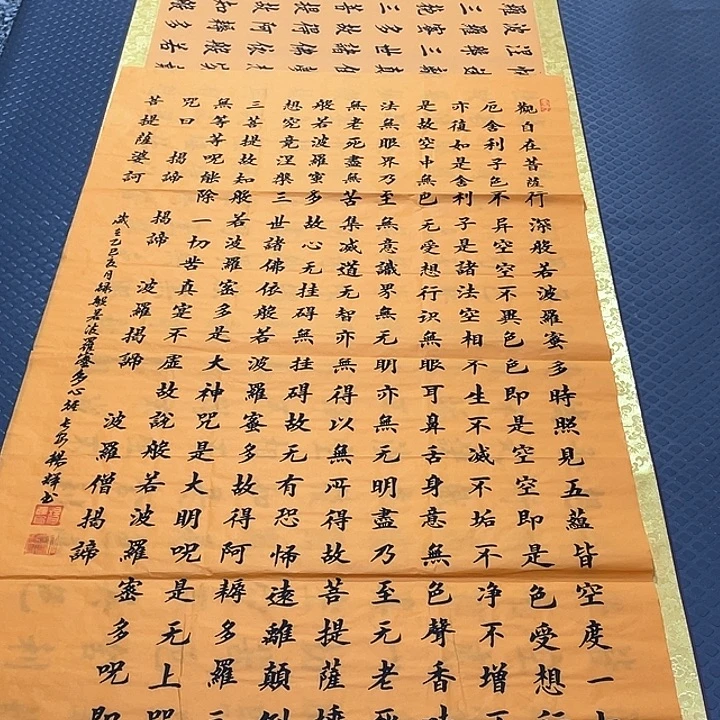 觀自在菩薩行深般若波羅蜜多時照見五蘊皆空度一
厄舍利子色不异空空不異色色即是空空即是色受想行
亦復如是舍利子是諸法空相不生不滅不垢不净不增不
是故空中無色无受想行识無眼耳鼻舌身意無色聲香味
法無眼界乃至無意識界無无明亦無无明盡乃至无老死
無老死盡無苦集滅道无智亦無得以無所得故菩提薩埵
般若波羅蜜多故心无挂碍無挂碍故无有恐怖遠離顛倒
想究竟涅槃三世諸佛依般若波羅蜜多故得阿耨多羅三
三菩提故知般若波羅蜜多是大神咒是大明呪是无上咒
無等等呪能除一切苦真寔不虛故説般若波羅蜜多呪即
咒曰 揭諦 揭諦 波羅揭諦 波羅僧揭諦
菩提薩婆訶
歲在乙巳五月錄般若波羅蜜多心經